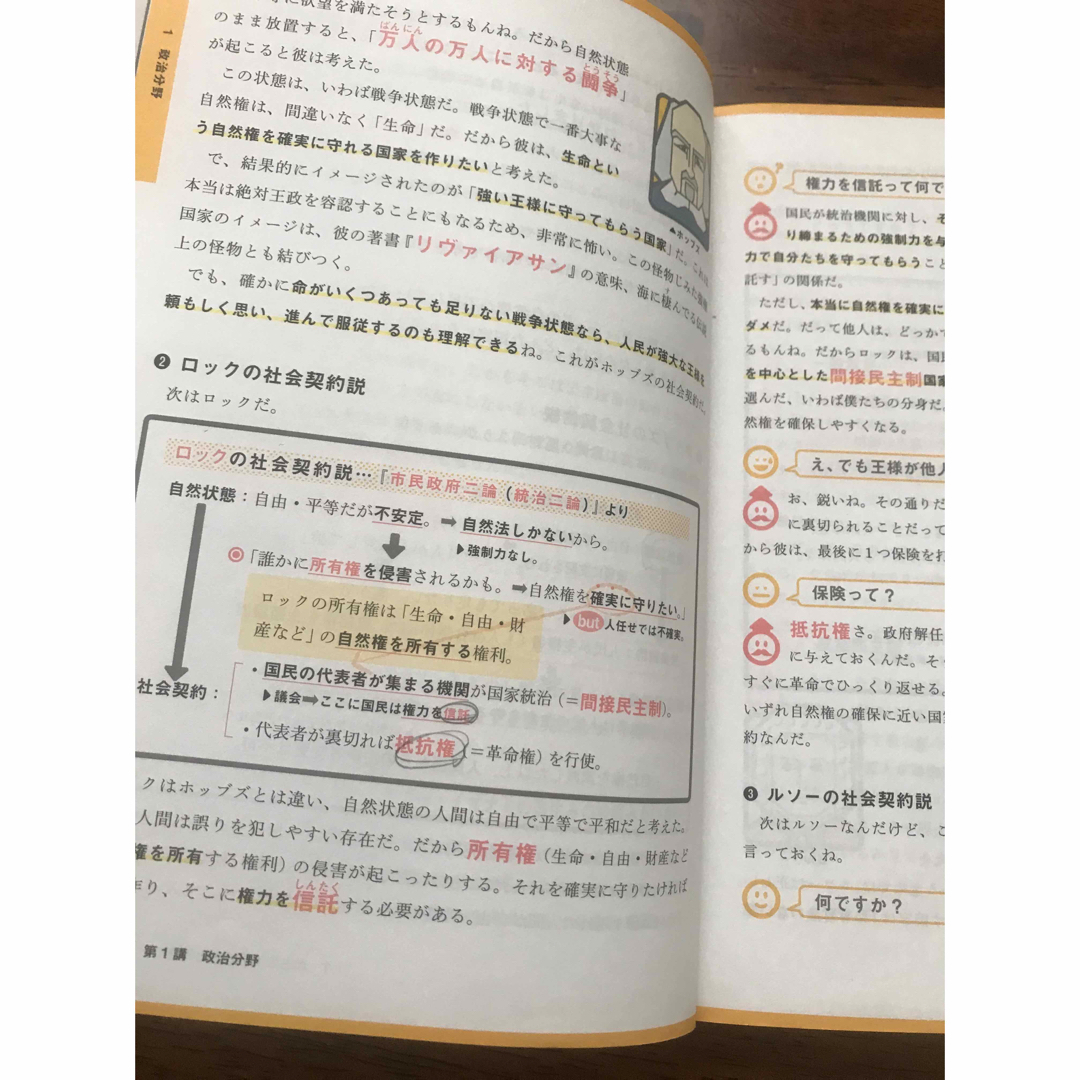 1 政治分野
に欲望を満たそうとするもんね。だから自然状態
のまま放置すると、「万人の万人に対する闘争」
ばんにん
とうそう
が起こると彼は考えた。
この状態は、いわば戦争状態だ。戦争状態で一番大事な
自然権は、間違いなく「生命」だ。だから彼は、生命とい
う自然権を確実に守れる国家を作りたいと考えた。
で、結果的にイメージされたのが「強い王様に守ってもらう国家」だ。これは
本当は絶対王政を容認することにもなるため、非常に怖い。この怪物じみた
国家のイメージは、彼の著書『リヴァイアサン』の意味、海に棲んでる伝説
上の怪物とも結びつく。
でも、確かに命がいくつあっても足りない戦争状態なら、人民が強大な王様を
頼もしく思い、進んで服従するのも理解できるね。これがホッブズの社会契約だ。
▲ホッブズ
❷ ロックの社会契約説
次はロックだ。
ロックの社会契約説…「市民政府二論(統治二論)」より
自然状態：自由・平等だが不安定。➡自然法しかないから。
▶強制力なし。
◉「誰かに所有権を侵害されるかも。➡自然権を確実に守りたい。」
▶but人任せでは不確実。
ロックの所有権は「生命・自由・財
産など」の自然権を所有する権利。
社会契約：
・国民の代表者が集まる機関が国家統治(＝間接民主制)。
▶議会➡ここに国民は権力を信託。
・代表者が裏切れば抵抗権(＝革命権)を行使。
クはホッブズとは違い、自然状態の人間は自由で平等で平和だと考えた。
人間は誤りを犯しやすい存在だ。だから所有権(生命・自由・財産など
権を所有する権利)の侵害が起こったりする。それを確実に守りたければ
作り、そこに権力を信託する必要がある。
しんたく
第1講 政治分野
権力を信託って何で
国民が統治機関に対し、そ
り締まるための強制力を与
力で自分たちを守ってもらうこと
託す」の関係だ。
ただし、本当に自然権を確実に
ダメだ。だって他人は、どっかで
るもんね。だからロックは、国民
を中心とした間接民主制国家
選んだ、いわば僕たちの分身だ。
然権を確保しやすくなる。
え、でも王様が他人
お、鋭いね。その通りだ
に裏切られることだって
から彼は、最後に1つ保険を打
保険って？
抵抗権さ。政府解任
に与えておくんだ。そう
すぐに革命でひっくり返せる。
いずれ自然権の確保に近い国
約なんだ。
❸ ルソーの社会契約説
次はルソーなんだけど、こ
言っておくね。
何ですか？